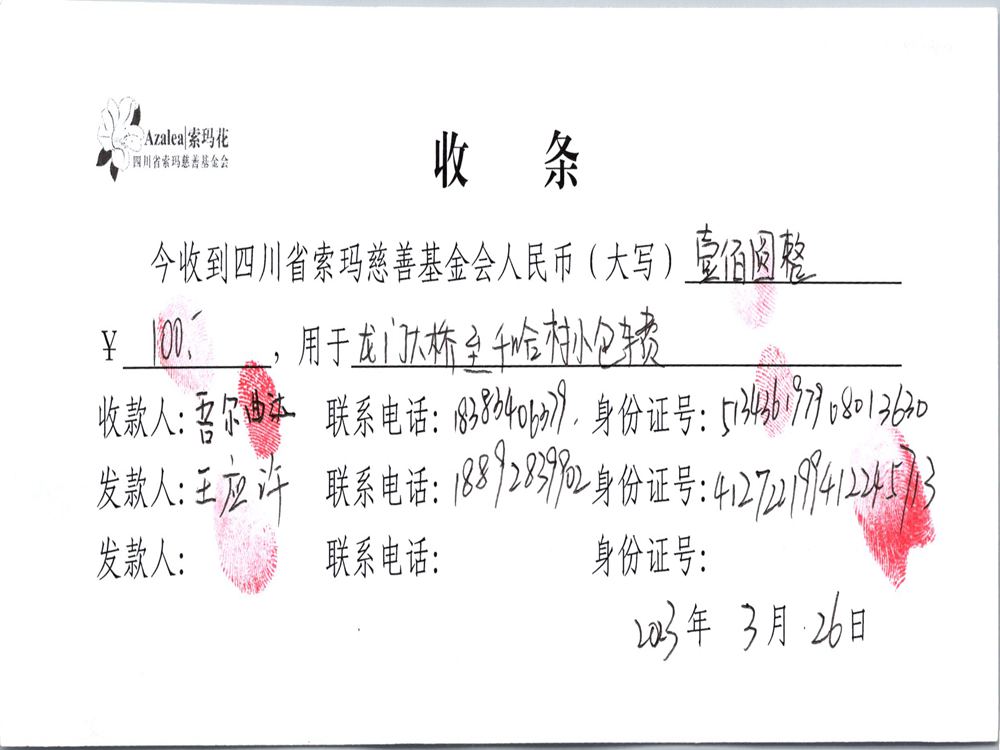 Azalea|索玛花
四川省索玛慈善基金会
收 条
今收到四川省索玛慈善基金会人民币（大写）壹佰圆整
￥100.-，用于龙门大桥至千哈村小包车费
收款人：吾尔曲 联系电话：18383406379. 身份证号：513436197908013630
发款人：王应许 联系电话：18892839902 身份证号：412722199412245713
发款人： 联系电话： 身份证号：
2023年 3月 26日